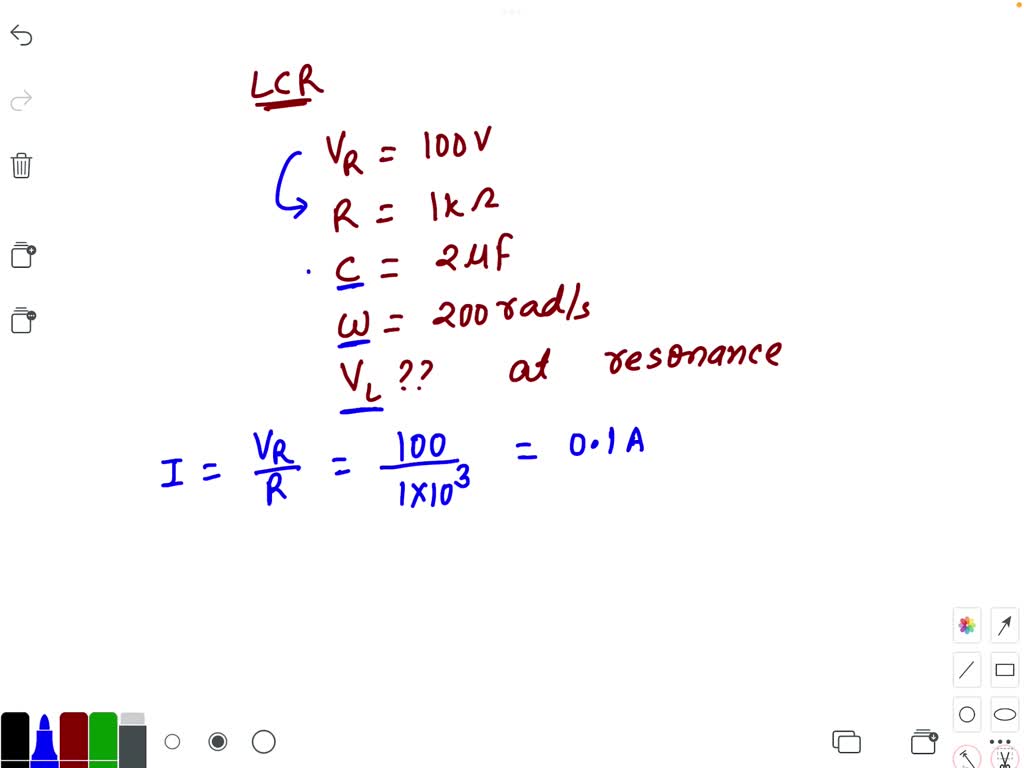 LCR
V_R = 100V
R = 1kΩ
C = 2μF
ω = 200 rad/s
V_L ?? at resonance
I = V_R/R = 100/1×10³ = 0.1A